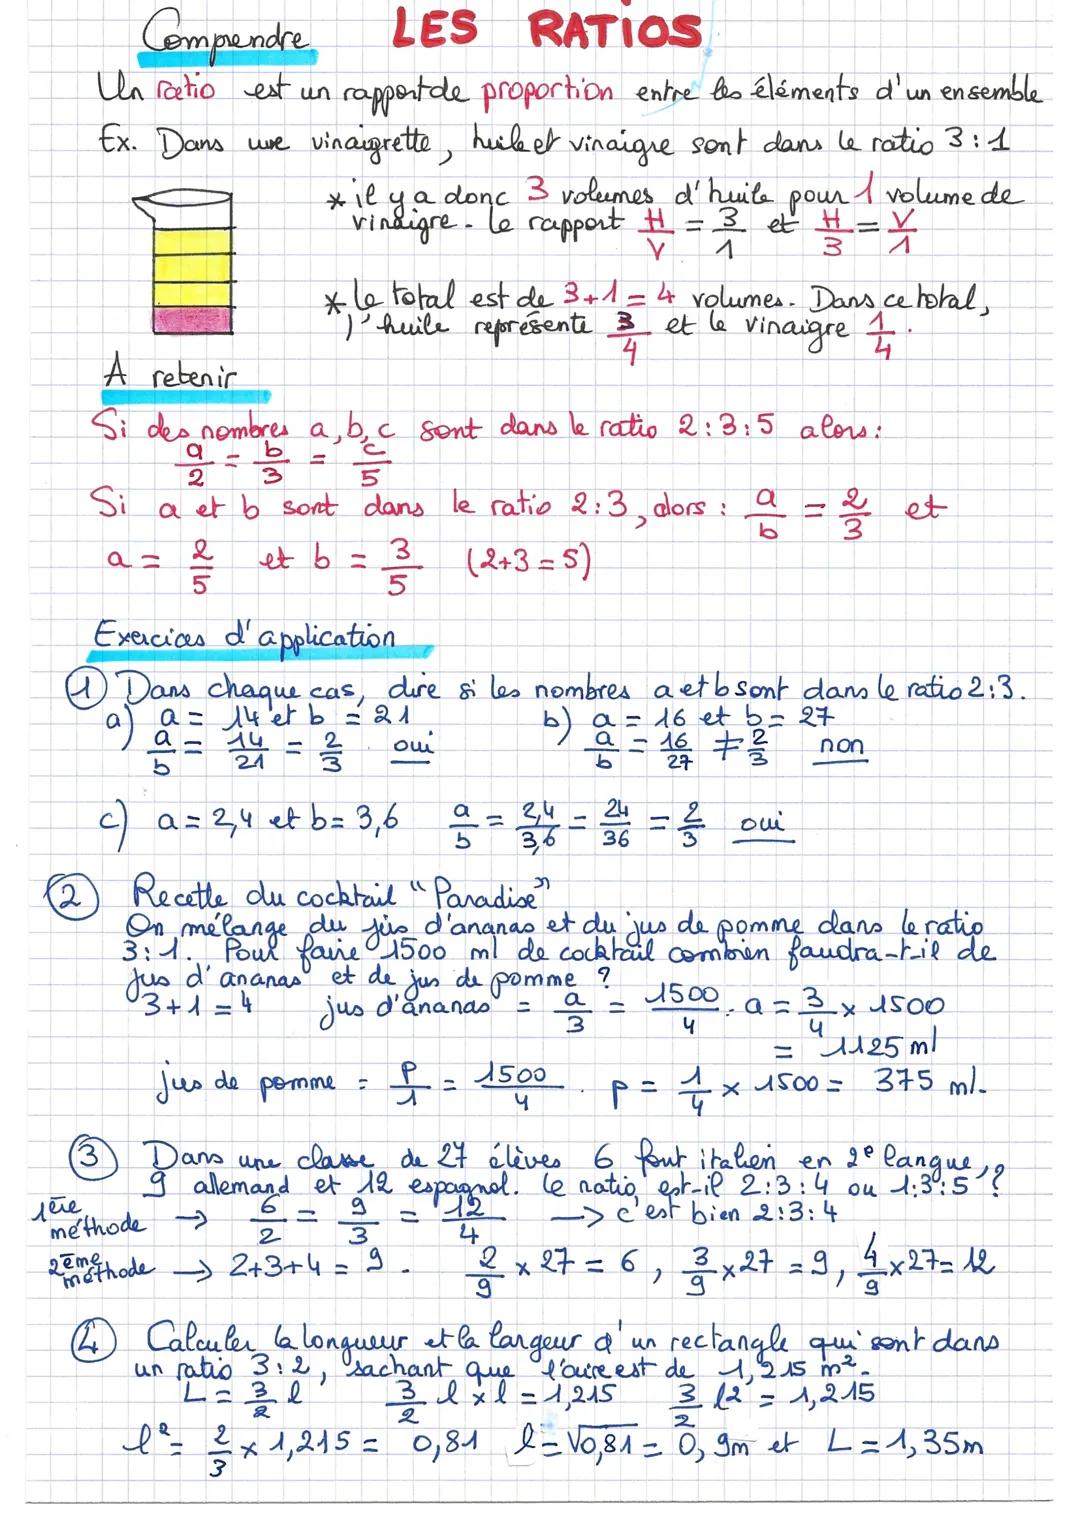 Comprendre LES RATIOS
Un ratio est un rapport de proportion entre les éléments d'un ensemble
Ex. Dans une vinaigrette, huile et vinaigre sont dans le ratio 3:1
* il y a donc 3 volumes d'huile pour 1 volume de
vinaigre. Le rapport H/V = 3/1 et H/3 = V/1
* le total est de 3+1 = 4 volumes. Dans ce total,
l'huile représente 3/4 et le vinaigre 1/4.
A retenir
Si des nombres a, b, c sont dans le ratio 2:3:5 alors:
a/2 = b/3 = c/5
Si a et b sont dans le ratio 2:3, alors : a/b = 2/3 et
a = 2/5 et b = 3/5 (2+3=5)
Exercices d'application
1 Dans chaque cas, dire si les nombres a et b sont dans le ratio 2:3.
a) a = 14 et b = 21 b) a = 16 et b = 27
a/b = 14/21 = 2/3 oui a/b = 16/27 ≠ 2/3 non
c) a = 2,4 et b = 3,6 a/b = 2,4/3,6 = 24/36 = 2/3 oui
2 Recette du cocktail "Paradise"
On mélange du jus d'ananas et du jus de pomme dans le ratio
3:1. Pour faire 1500 ml de cocktail combien faudra-t-il de
jus d'ananas et de jus de pomme ?
3+1 = 4 jus d'ananas = a/3 = 1500/4. a = 3/4 x 1500
= 1125 ml
jus de pomme = P/1 = 1500/4. p = 1/4 x 1500 = 375 ml.
3 Dans une classe de 27 élèves 6 font italien en 2e langue,
9 allemand et 12 espagnol. Le ratio est-il 2:3:4 ou 1:3:5 ?
1ère méthode → 6/2 = 9/3 = 12/4 → c'est bien 2:3:4
2ème méthode → 2+3+4 = 9. 2/9 x 27 = 6, 3/9 x 27 = 9, 4/9 x 27 = 12
4 Calculer la longueur et la largeur d'un rectangle qui sont dans
un ratio 3:2, sachant que l'aire est de 1,215 m².
L = 3/2 l 3/2 l x l = 1,215 3/2 l² = 1,215
l² = 2/3 x 1,215 = 0,81 l = √0,81 = 0,9m et L = 1,35m